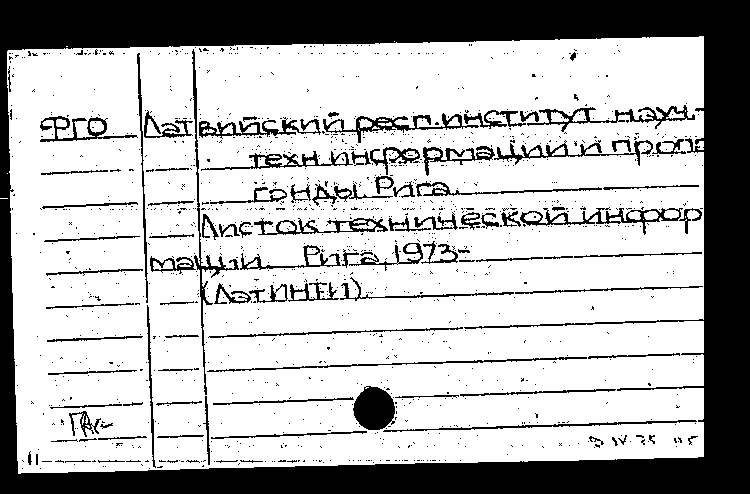 ФГО Латвийский респ. институт науч.-
техн. информации и пропа
ганды. Рига.
Листок технической инфор
мации. Рига, 1973-
(ЛатИНТИ).
11